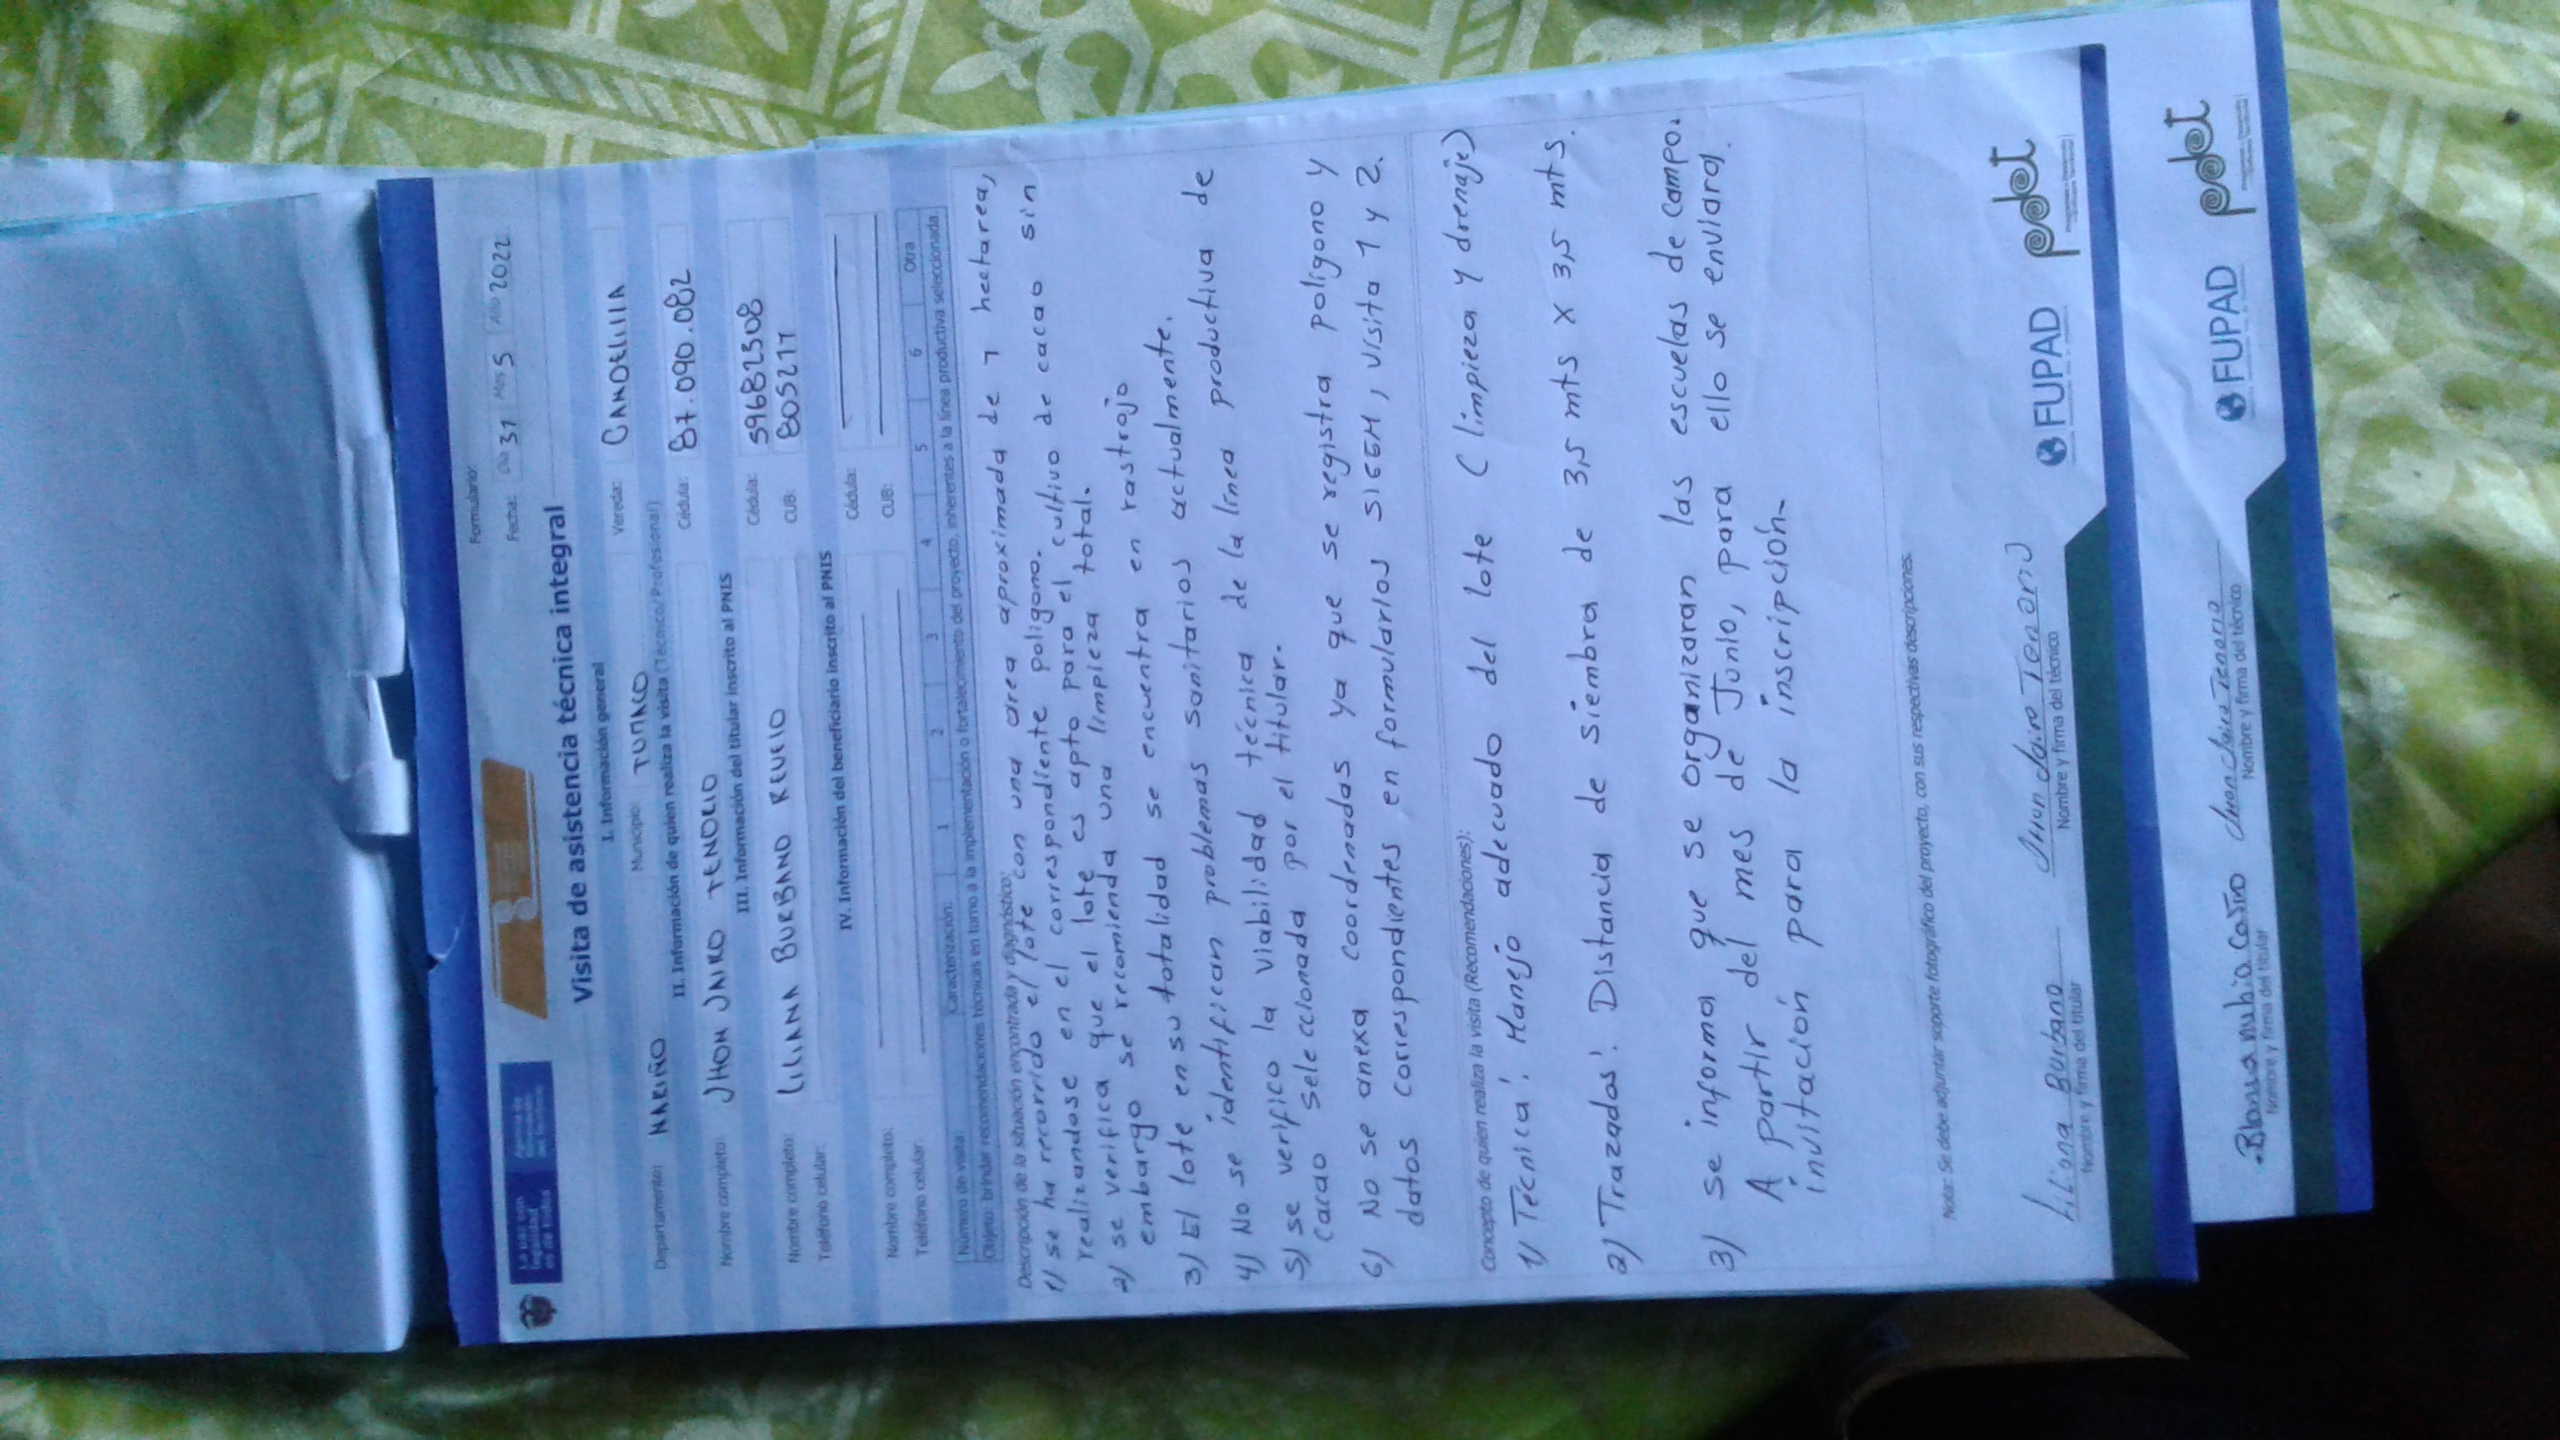 La paz con legalidad es de todos
Agencia de Renovación del Territorio
Formulario:
Fecha: Día 31 Mes 5 Año 2022
Visita de asistencia técnica integral
I. Información general
Departamento: NARIÑO Municipio: TUMACO Vereda: CANDELILLA
II. Información de quien realiza la visita (Técnico/Profesional)
Nombre completo: JHON JAIRO TENORIO Cédula: 87.090.082
III. Información del titular inscrito al PNIS
Nombre completo: LILIANA BURBANO Cédula: 59682508
Teléfono celular: CUB:
IV. Información del beneficiario inscrito al PNIS
Nombre completo: Cédula:
Teléfono celular: CUB:
Número de visita: Caracterización: 1 2 3 4 5 6 Otra
Objeto: brindar recomendaciones técnicas en torno a la implementación o fortalecimiento del proyecto, inherentes a la línea productiva seleccionada.
Descripción de la situación encontrada y diagnóstico:
1) se ha recorrido el lote con una area aproximada de 1 hectarea,
realizandose en el correspondiente poligono.
2) se verifica que el lote es apto para el cultivo de cacao sin
embargo se recomienda una limpieza total.
3) El lote en su totalidad se encuentra en rastrojo
4) No se identifican problemas sanitarios actualmente.
5) se verifico la viabilidad técnica de la línea productiva de
cacao seleccionada por el titular.
6) No se anexa coordenadas ya que se registra poligono y
datos correspondientes en formularios SIGEM, visita 1 y 2.
Concepto de quien realiza la visita (Recomendaciones):
1) Técnica: Manejo adecuado del lote (limpieza y drenaje)
2) Trazados: Distancia de siembra de 3,5 mts x 3,5 mts.
3) se informa que se organizaran las escuelas de campo.
A partir del mes de Junio, para ello se enviara
invitación para la inscripción.
Nota: Se debe adjuntar soporte fotográfico del proyecto, con sus respectivas descripciones.
Liliana Burbano Jhon Jairo Tenorio
Nombre y firma del titular Nombre y firma del técnico
FUPAD pdet
Blanca nubia Jhon Jairo Tenorio
Nombre y firma del titular Nombre y firma del técnico
FUPAD pdet